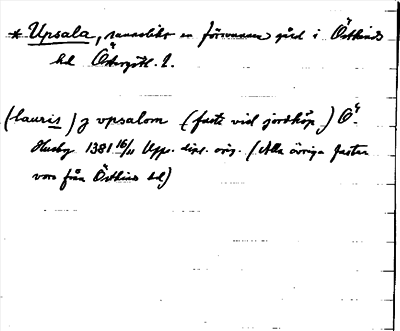 * Upsala, sannolikt en försvunnen gård i Östkinds
hd Östergötl. l.
(lauris) j vpsalom (faste vid jordköp.) Ö.
Husby 1381 16/11 Upps. dipl. orig. (Alla övriga fastar
voro från Östkinds hd)